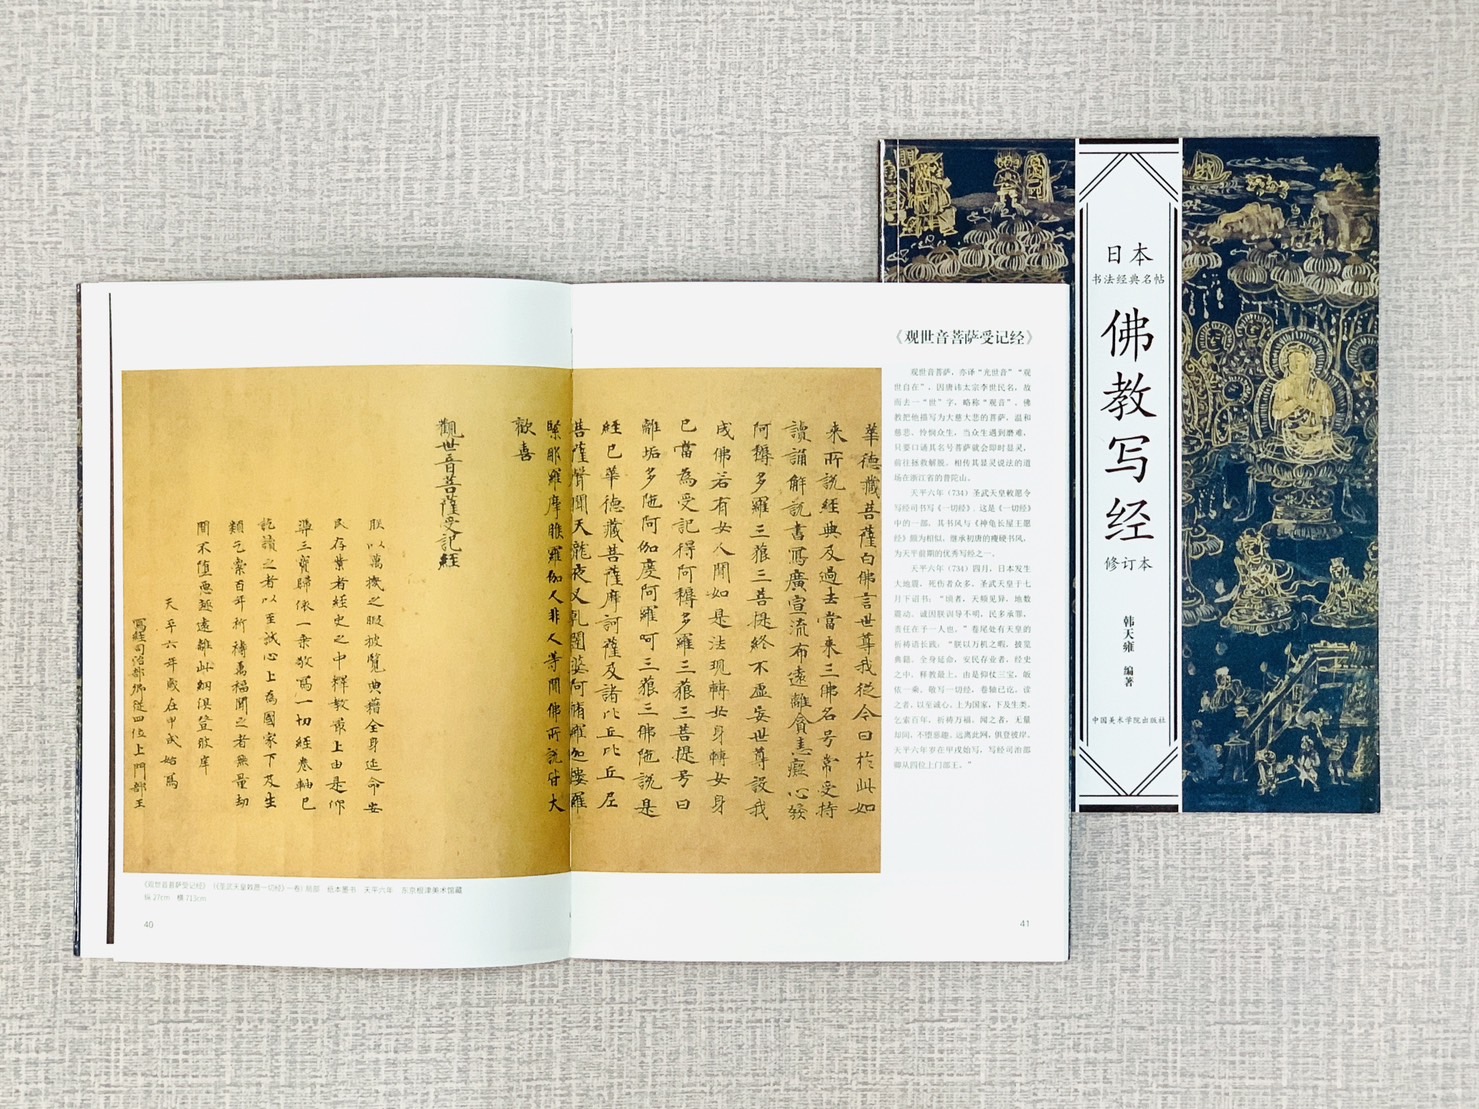 《观世音菩萨受记经》
观世音菩萨，亦译“光世音”“观
世自在”，因唐讳太宗李世民名，故
而去一“世”字，略称“观音”。佛
教把他描写为大慈大悲的菩萨，温和
慈悲，怜悯众生，当众生遇到磨难，
只要口诵其名号菩萨就会即时显灵，
前往拯救解脱。相传其显灵说法的道
场在浙江省的普陀山。
天平六年（734）圣武天皇敕愿令
写经司书写《一切经》，这是《一切经》
中的一部。其书风与《神龟长屋王愿
经》颇为相似，继承初唐的瘦硬书风，
为天平前期的优秀写经之一。
天平六年（734）四月，日本发生
大地震，死伤者众多。圣武天皇于七
月下诏书：“顷者，天频见异，地数
震动。诚因朕训导不明，民多承罪，
责任在予一人也。”卷尾处有天皇的
祈祷语长跋：“朕以万机之暇，披览
典籍。全身延命，安民存业者，经史
之中，释教最上。由是仰仗三宝，皈
依一乘，敬写一切经，卷轴已讫。读
之者，以至诚心，上为国家，下及生类，
乞索百年，祈祷万福。闻之者，无量
却间，不堕恶趣。远离此网，俱登彼岸。
天平六年岁在甲戌始写，写经司治部
卿从四位上门部王。”
華德藏菩薩白佛言世尊我從今日於此如
来所說經典及過去當来三佛名号常受持
讀誦解說書寫廣宣流布遠離貪恚癡心發
阿耨多羅三藐三菩提終不虚妄世尊設我
成佛若有女人聞如是法現轉女身轉女身
已當為受記得阿耨多羅三藐三菩提号曰
離垢多陁阿伽度阿羅呵三藐三佛陁說是
經已華德藏菩薩摩訶薩及諸比丘比丘尼
菩薩聲聞天龍夜叉乹闥婆阿脩羅迦樓羅
緊那羅摩睺羅伽人非人等聞佛所說皆大
歡喜
觀世音菩薩受記經
朕以萬機之暇披覽典籍全身延命安
民存業者經史之中釋教最上由是仰
憑三寳歸依一乘敬寫一切經卷軸已
訖讀之者以至誠心上為國家下及生
類乞索百年祈禱萬福聞之者無量劫
間不堕惡趣遠離此網俱登彼岸
天平六年歲在甲戌始寫
寫經司治部卿從四位上門部王
《观世音菩萨受记经》（《圣武天皇敕愿一切经》一卷）局部　纸本墨书　天平六年　东京根津美术馆藏
纵27cm　横713cm
40
41
日本
书法经典名帖
佛教写经
修订本
韩天雍　编著
中国美术学院出版社